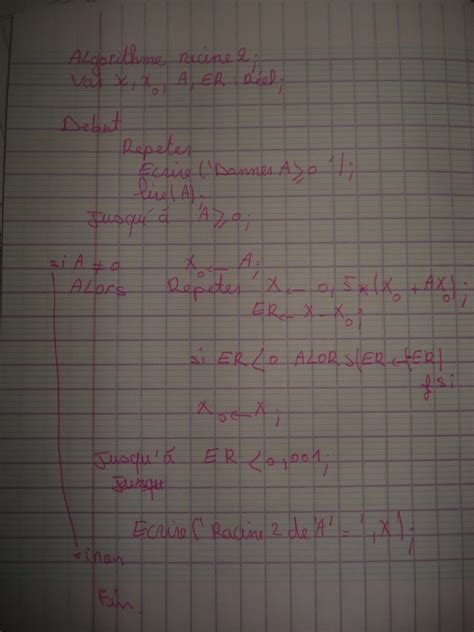 Algorithme racine 2;
Var X, X₀, A, ER Réel;
Debut
Repeter
Ecrire ('Donner A ≥ 0 ');
lire(A);
Jusqu'à A ≥ 0;
si A ≠ 0 X₀ ← A;
Alors Repeter X ← 0,5*(X₀ + AX₀);
ER ← X - X₀;
si ER < 0 ALORS (ER ← -ER)
fsi
X₀ ← X;
Jusqu'à ER < 0,001;
Jusqu
Ecrire ('Racine 2 de 'A' = ', X);
sinon
Fin